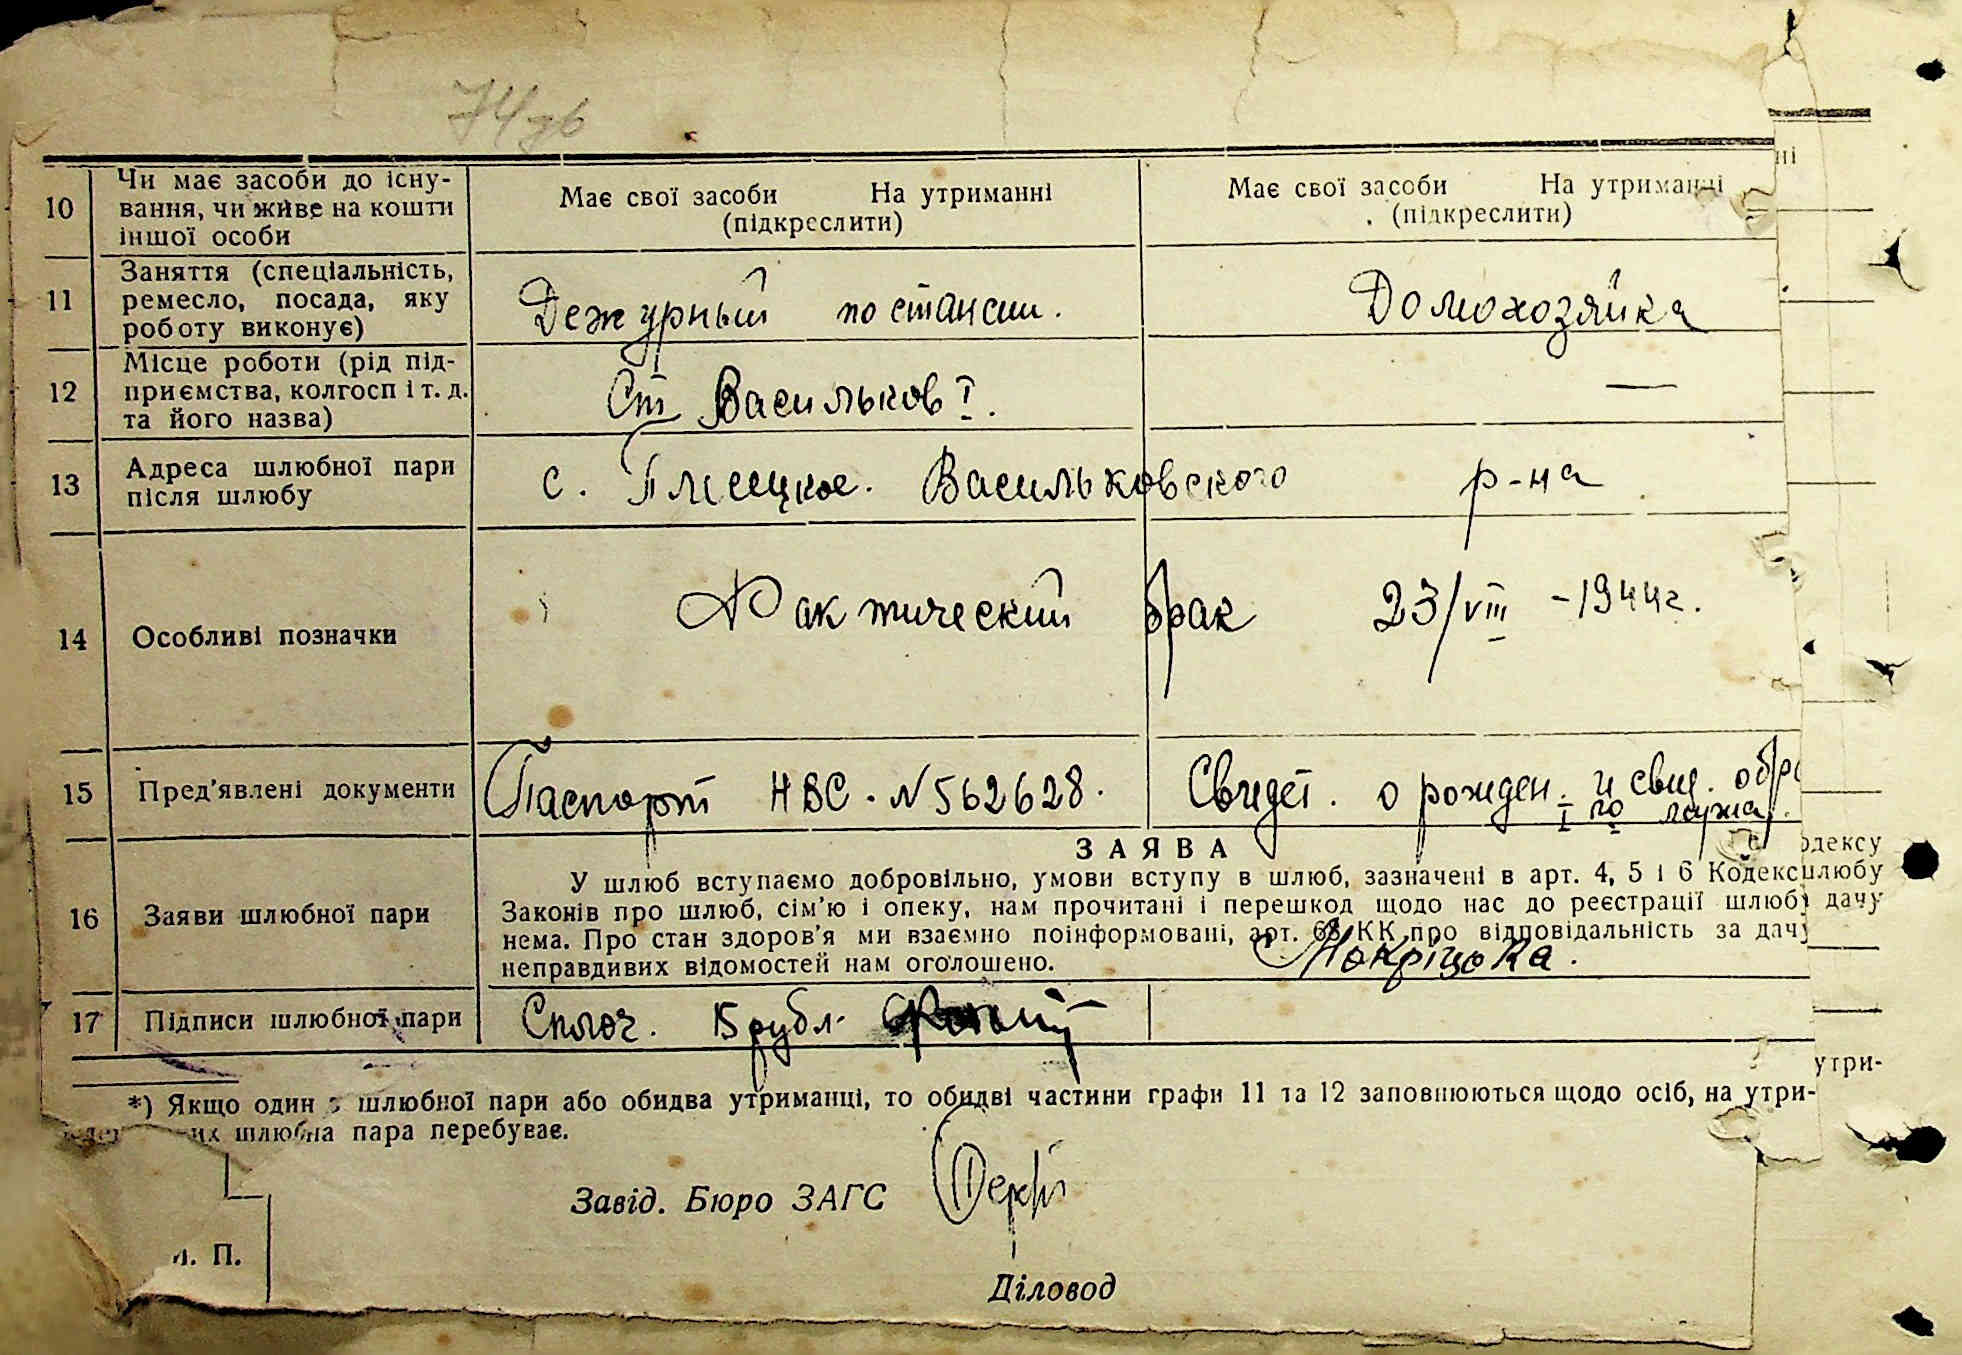 74зв
10 Чи має засоби до існу-
вання, чи живе на кошти
іншої особи
Має свої засоби На утриманні
(підкреслити)
Має свої засоби На утриманні
(підкреслити)
11 Заняття (спеціальність,
ремесло, посада, яку
роботу виконує)
Дежурный по станции.
Домохозяйка
12 Місце роботи (рід під-
приємства, колгосп і т. д.
та його назва)
Ст Васильков I.
—
13 Адреса шлюбної пари
після шлюбу
с. Васильковского р-на
14 Особливі позначки
Фактический брак 23/VIII -1944г.
15 Пред'явлені документи
Паспорт НВС. N 562628.
Свидет. о рожден. и свид. о
I го мужа.
16 Заяви шлюбної пари
ЗАЯВА
У шлюб вступаємо добровільно, умови вступу в шлюб, зазначені в арт. 4, 5 і 6 Кодекс
Законів про шлюб, сім'ю і опеку, нам прочитані і перешкод щодо нас до реєстрації шлюбу
нема. Про стан здоров'я ми взаємно поінформовані, арт. 68 КК про відповідальність за дачу
неправдивих відомостей нам оголошено.
17 Підписи шлюбної пари
15 рубл.
*) Якщо один з шлюбної пари або обидва утриманці, то обидві частини графи 11 та 12 заповнюються щодо осіб, на утри-
их шлюбна пара перебуває.
Завід. Бюро ЗАГС
П.
Діловод
одексу
шлюбу
дачу
утри-